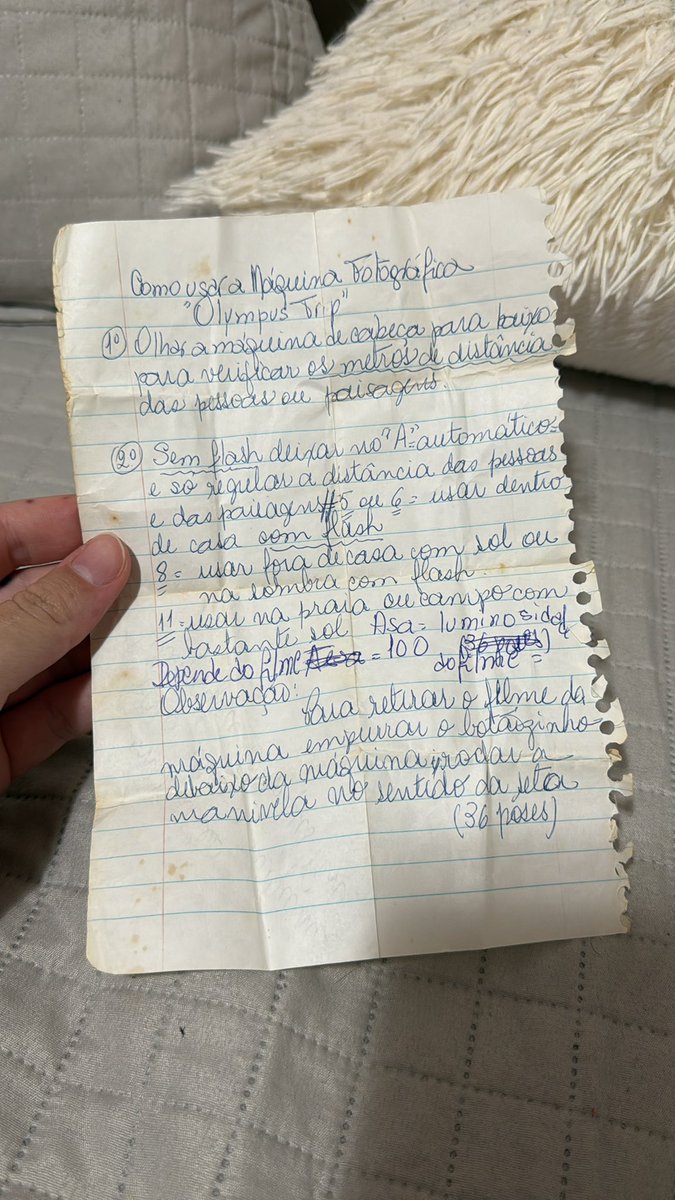 Como usar a Máquina Fotográfica
"Olympus Trip"
1º) Olhar a máquina de cabeça para baixo
para verificar os metros de distância
das pessoas ou paisagens.
2º) Sem flash deixar no "A" = automático =
e só regular a distância das pessoas
e das paisagens # 5 ou 6 = usar dentro
de casa com flash
8 = usar fora de casa com sol ou
na sombra com flash
11 = usar na praia ou campo com
bastante sol Asa = luminosid
Depende do filme = 100 (36 poses)
do filme =
Observação:
Para retirar o filme da
máquina empurrar o botãozinho
debaixo da máquina, rodar a
manivela no sentido da seta
(36 poses)